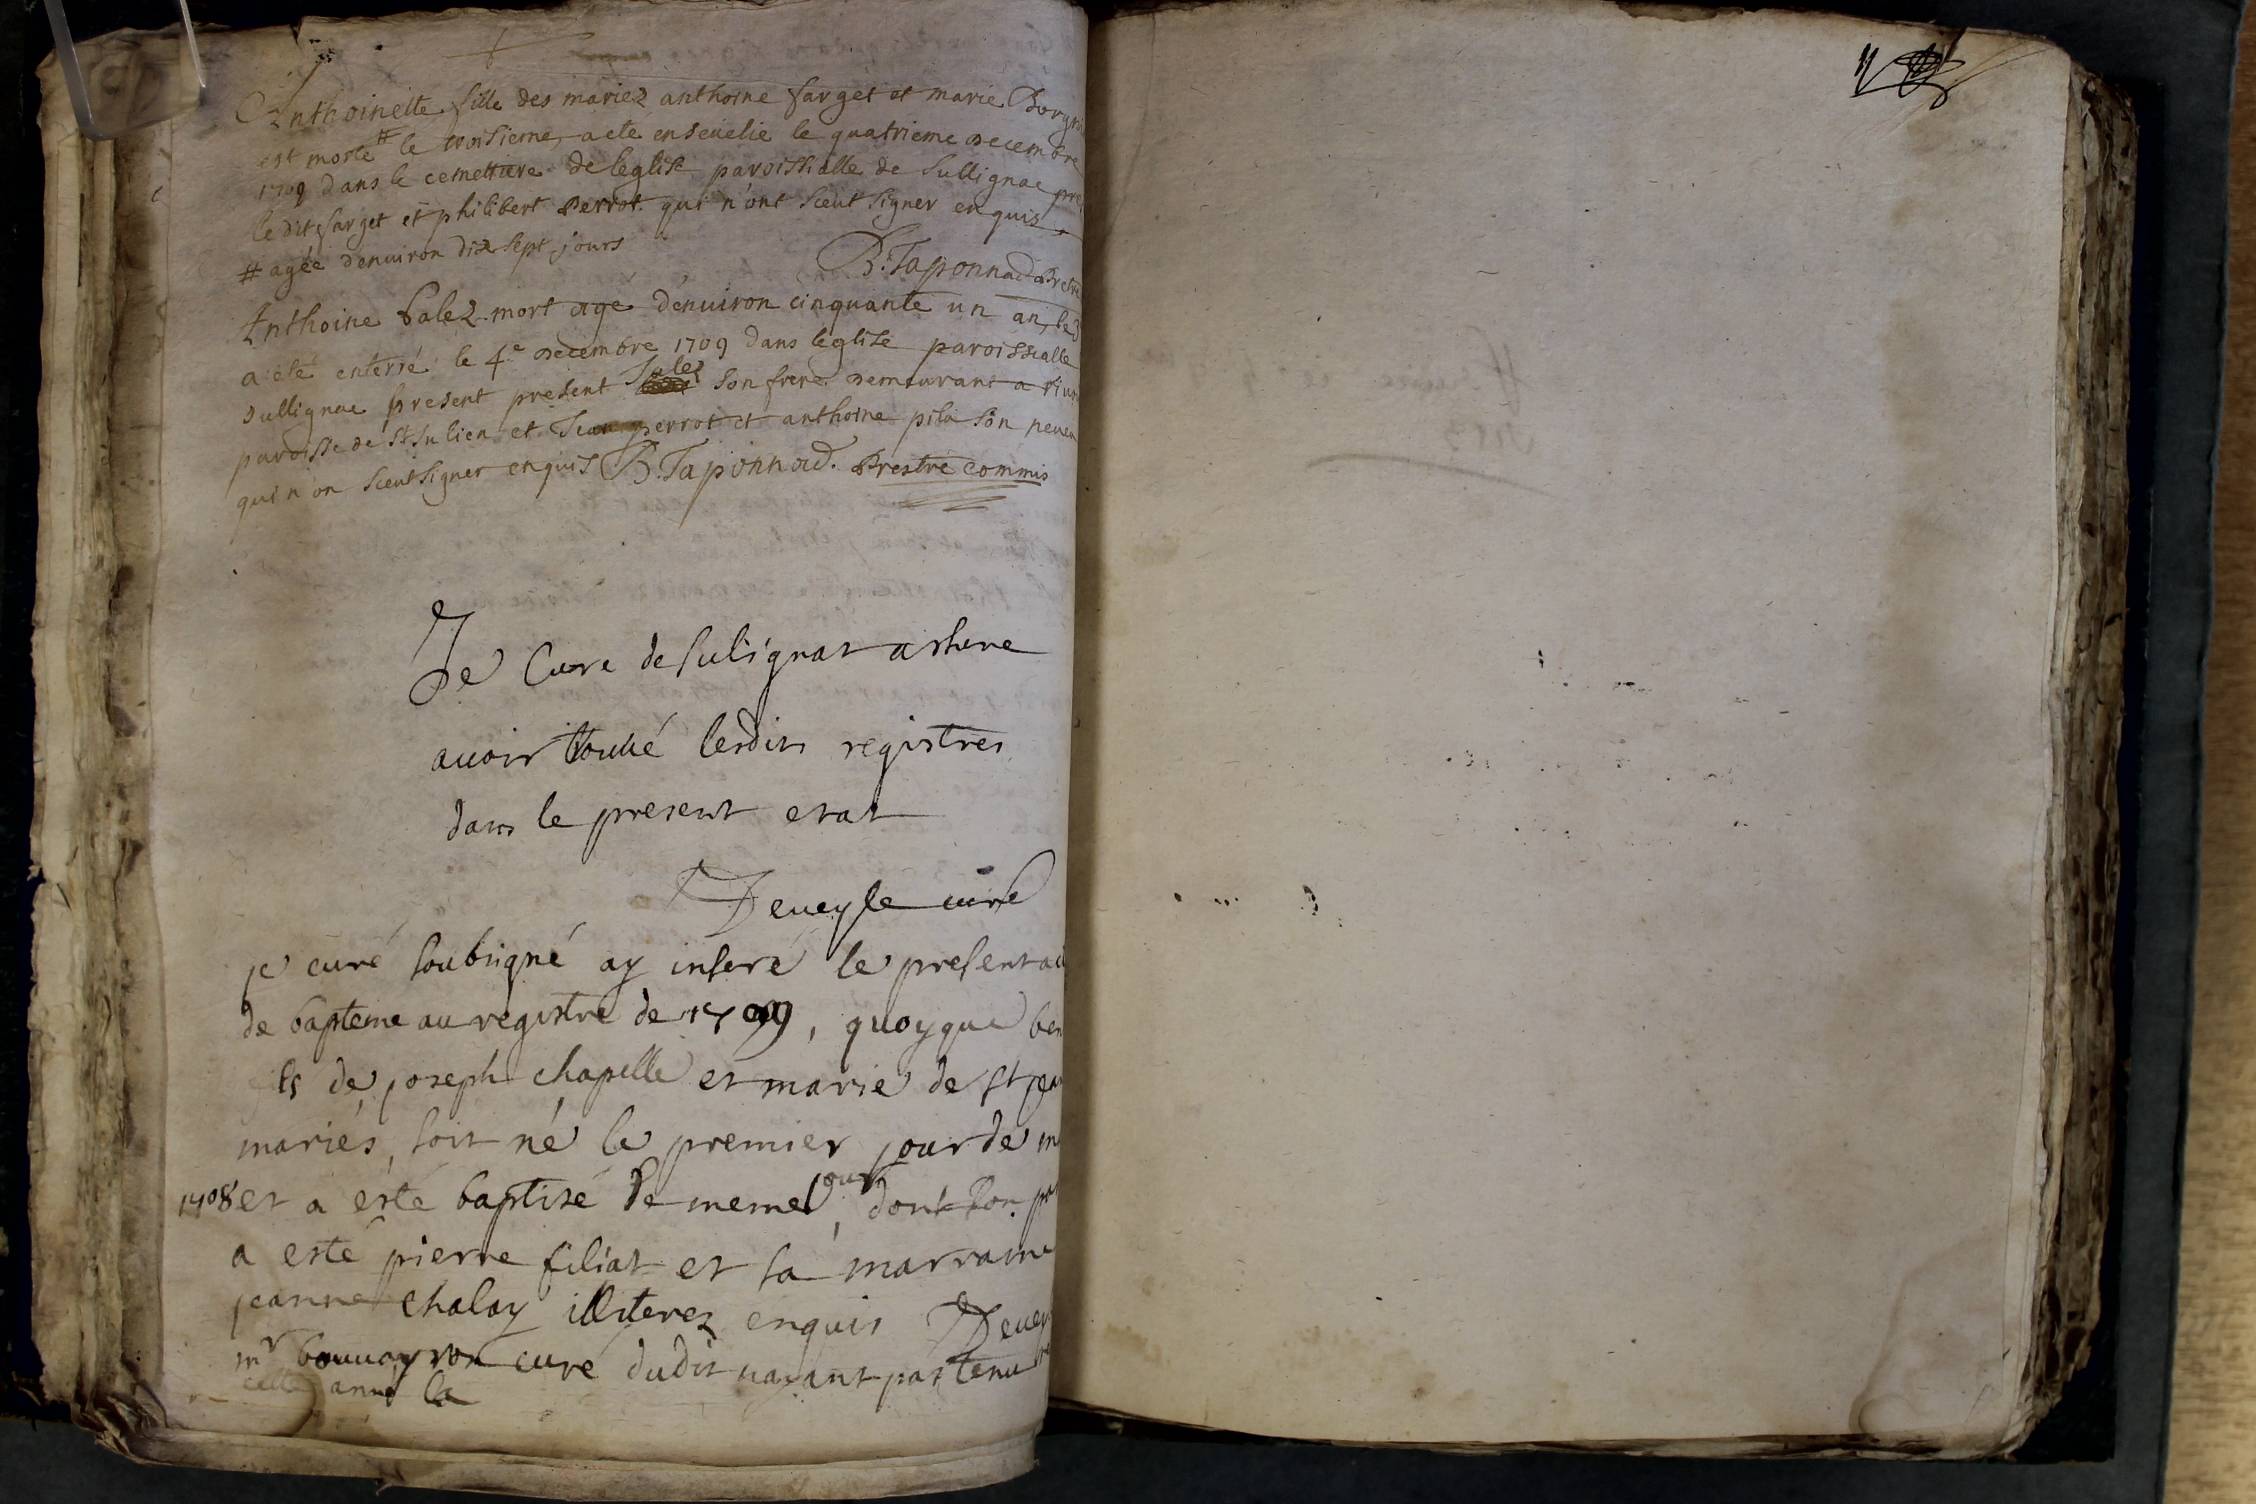 Anthoinette fille des mariez anthoine farget et marie
est morte # le troisieme, a eté enseuelie le quatrieme decembre
1709 dans le cemettiere de leglise paroissialle de Sullignac
ledit farget et philibert Perrot qui n'ont sceut signer enquis
# agée d'enuiron dix sept jours
B. Taponnad Prestre
Anthoine palez mort agé d'enuiron cinquante un an
a eté enterré le 4e decembre 1709 dans leglise paroissialle
Sullignac present present son frere demeurant a
paroisse de St Julien et Jean perrot et anthoine pila son neueu
qui n'on sceut signer enquis B. Taponnad. Prestre commis
Je Curé de Sulignat
auoir trouué lesdits registres
dans le present etat
Deueyle curé
je curé soubsigné ay inseré le present
de bapteme au registre de 1709, quoyque
fils de joseph chapelle et marie de St jean
mariés, soit né le premier jour de
1708 et a esté baptisé le meme jour, dont son
a esté pierre filiat et sa marraine
jeanne chalay illiterez enquis
mr bouuayron curé dudit nayant pas tenu
cette anné la